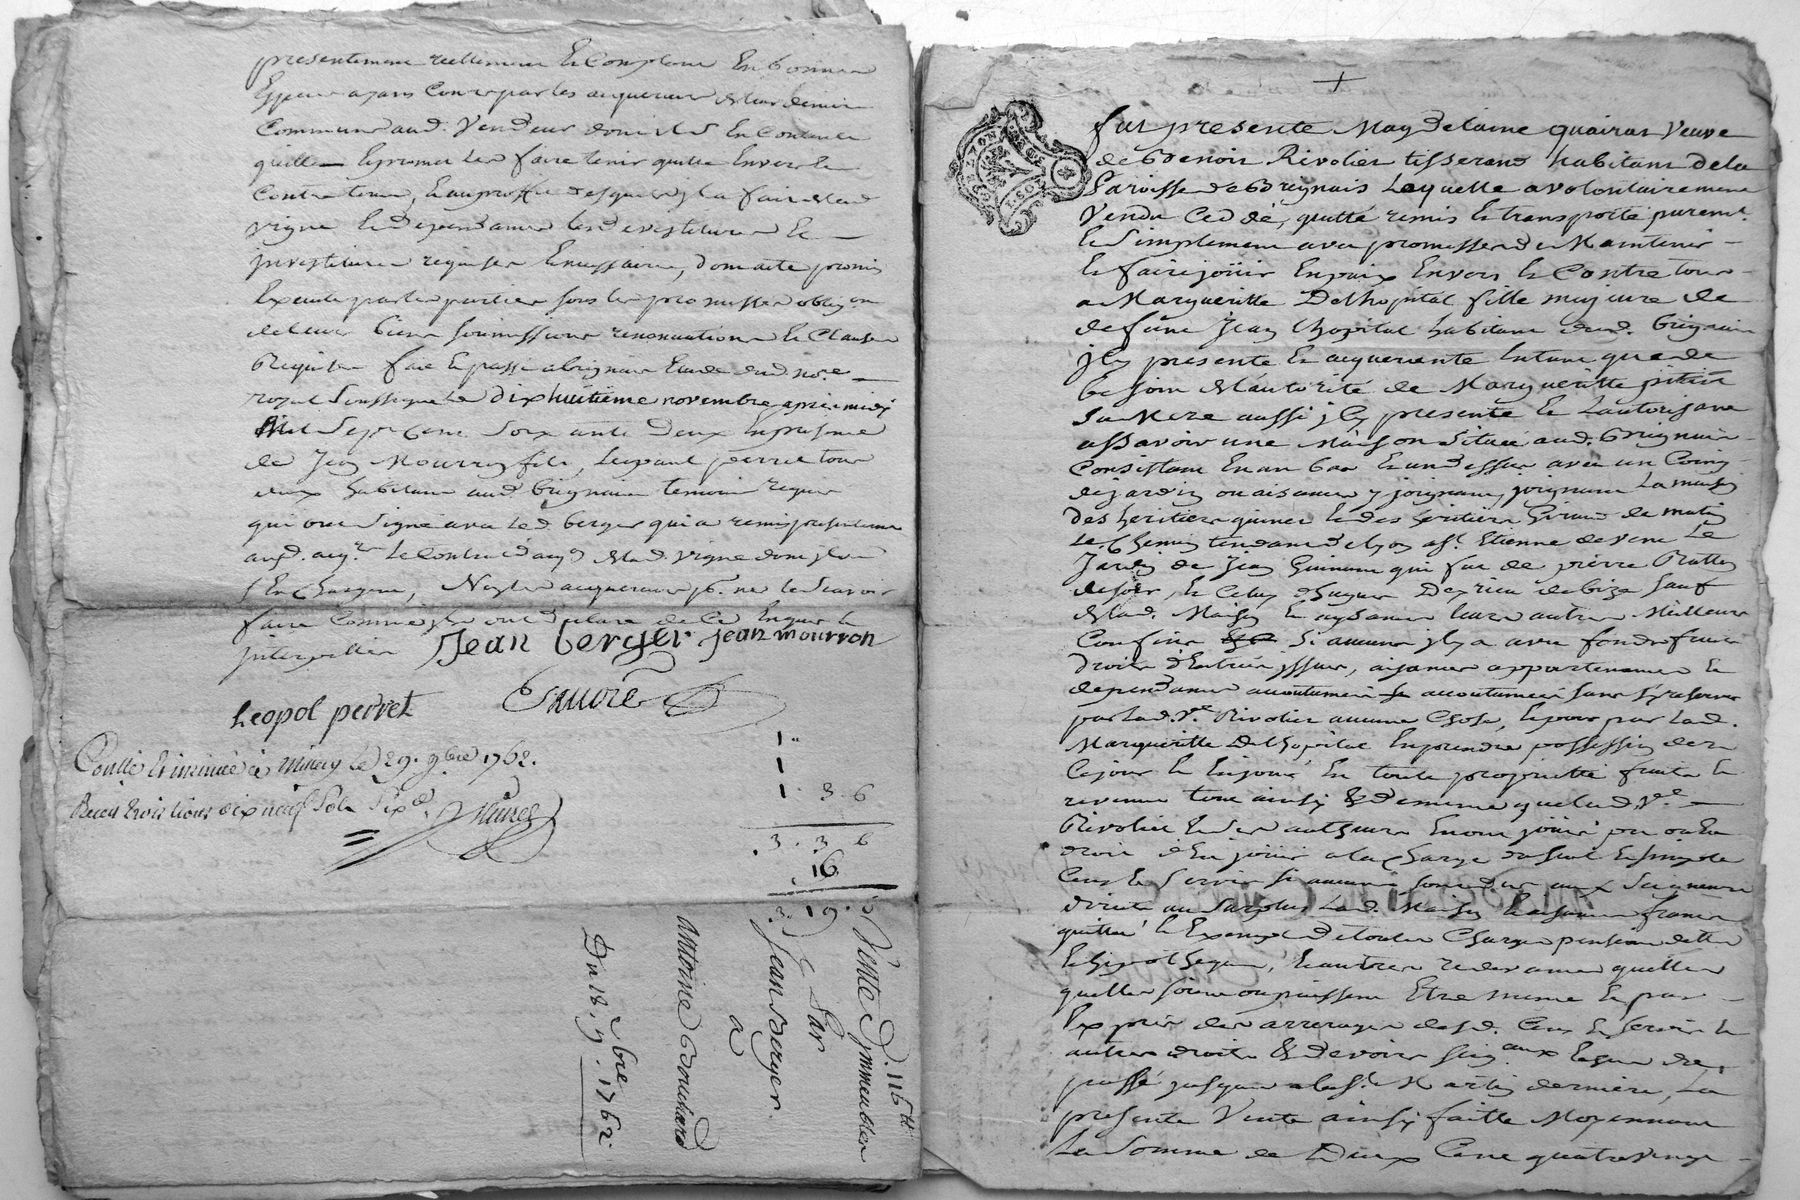 presentement reellement et comptant en bonnes
especes ayans cours par les acquereurs de leurs deniers
communs aud. vendeur dont il s'en contente
quitte et promet les faire tenir quitte envers et
contre tous, et au proffit desquels il a fait de lad
vigne et dependances les devestitures et
investitures requises et necessaires, dont acte promis
executé par les parties sous les promesses oblig.on
de leurs biens soumissions renonciations et clauses
Requises fait et passé a brignais Etude dud no.re
royal soussigné le dix huitième novembre après midy
Mil sept cent soixante deux en presence
de Jean Mourron fils, Leopaul perret tous
deux habitans aud. brignais temoins requis
qui ont signé avec led. berger qui a remis presentement
aud. acq.r le contract d'acq.on de lad. vigne dont ils
s'en chargent, Non les acquereurs p. ne le scavoir
faire comme ils ont declaré de ce enquis et
interpellés Jean berger Jean mourron
Leopol perret
Conllé et insinué à Millery le 29. 9bre 1762.
Receu trois livres dix neuf sols six d.
1"
1
1 . 3 . 6
3 . 3 . 6
16
3. 19. 6
Vente D'immeubles
Par
Jean Berger
a
Antoine Bouchard
Du 18. 9bre 1762
D. 116 tt
+
fut presente Magdelaine quairas veuve
de Benoit Rivolier tisserand habitant de la
Paroisse de Brignais Laquelle a volontairement
Vendu Ceddé, quitté remis et transporté purem.t
et simplement avec promesse de Maintenir
et faire joüir en paix envers et Contre tous
a Margueritte Delhopital fille majeure de
defunt Jean lhopital habitant dud. brignais
jcy presente et acquerente entant que de
besoin de l'autorité de Margueritte
sa Mere aussi jcy presente et L'autorisant
assavoir une Maison située aud. Brignais
Consistant en un bas et un dessus avec un Coing
de jardin ou aisances y joignant, joignant La maison
des heritiers et des heritiers Giraud de matin
Le Chemin tendant de lyon a S.t Etienne de vent Le
Jardin de Jean qui fut de pierre
de soir, et Celuy de bize sauf
de lad. Maison et aysances leurs autres Meilleurs
Confins si aucuns jl y a avec fonds fruits
droits d'Entrées jssues, aisances appartenances et
dependances accoutumées sans s'y reserver
par lad. V.e Rivolier aucune Chose, et pour par lad.
Margueritte Delhopital En prendre possession dez
Cejour et En joüir En toute proprietté fruits et
revenus tout ainsy & de meme que lad. V.e
Rivolier et ses autheurs En ont joüi ou ou eu
droit d'En joüir a la Charge du seul et simple
Cens et servis si aucuns sont dus aux Seigneurs
directs au surplus Lad. Maison et aisances franc
quitte et Exempt de toutes Charges pensions dettes
et hipotheques, et autres redevances quelles
quelles soient ou puissent Etre meme et par
Exprès des arrerages desd. Cens et servis et
autres droits & devoirs seig.aux Echus de
passé jusques a la S.t Martin derniere, La
presente Vente ainsy faitte Moyennant
La Somme de Deux Cent quatrevingt